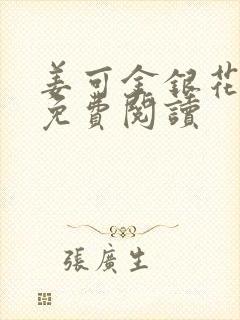 姜可金銀花
免費閱讀
張廣生